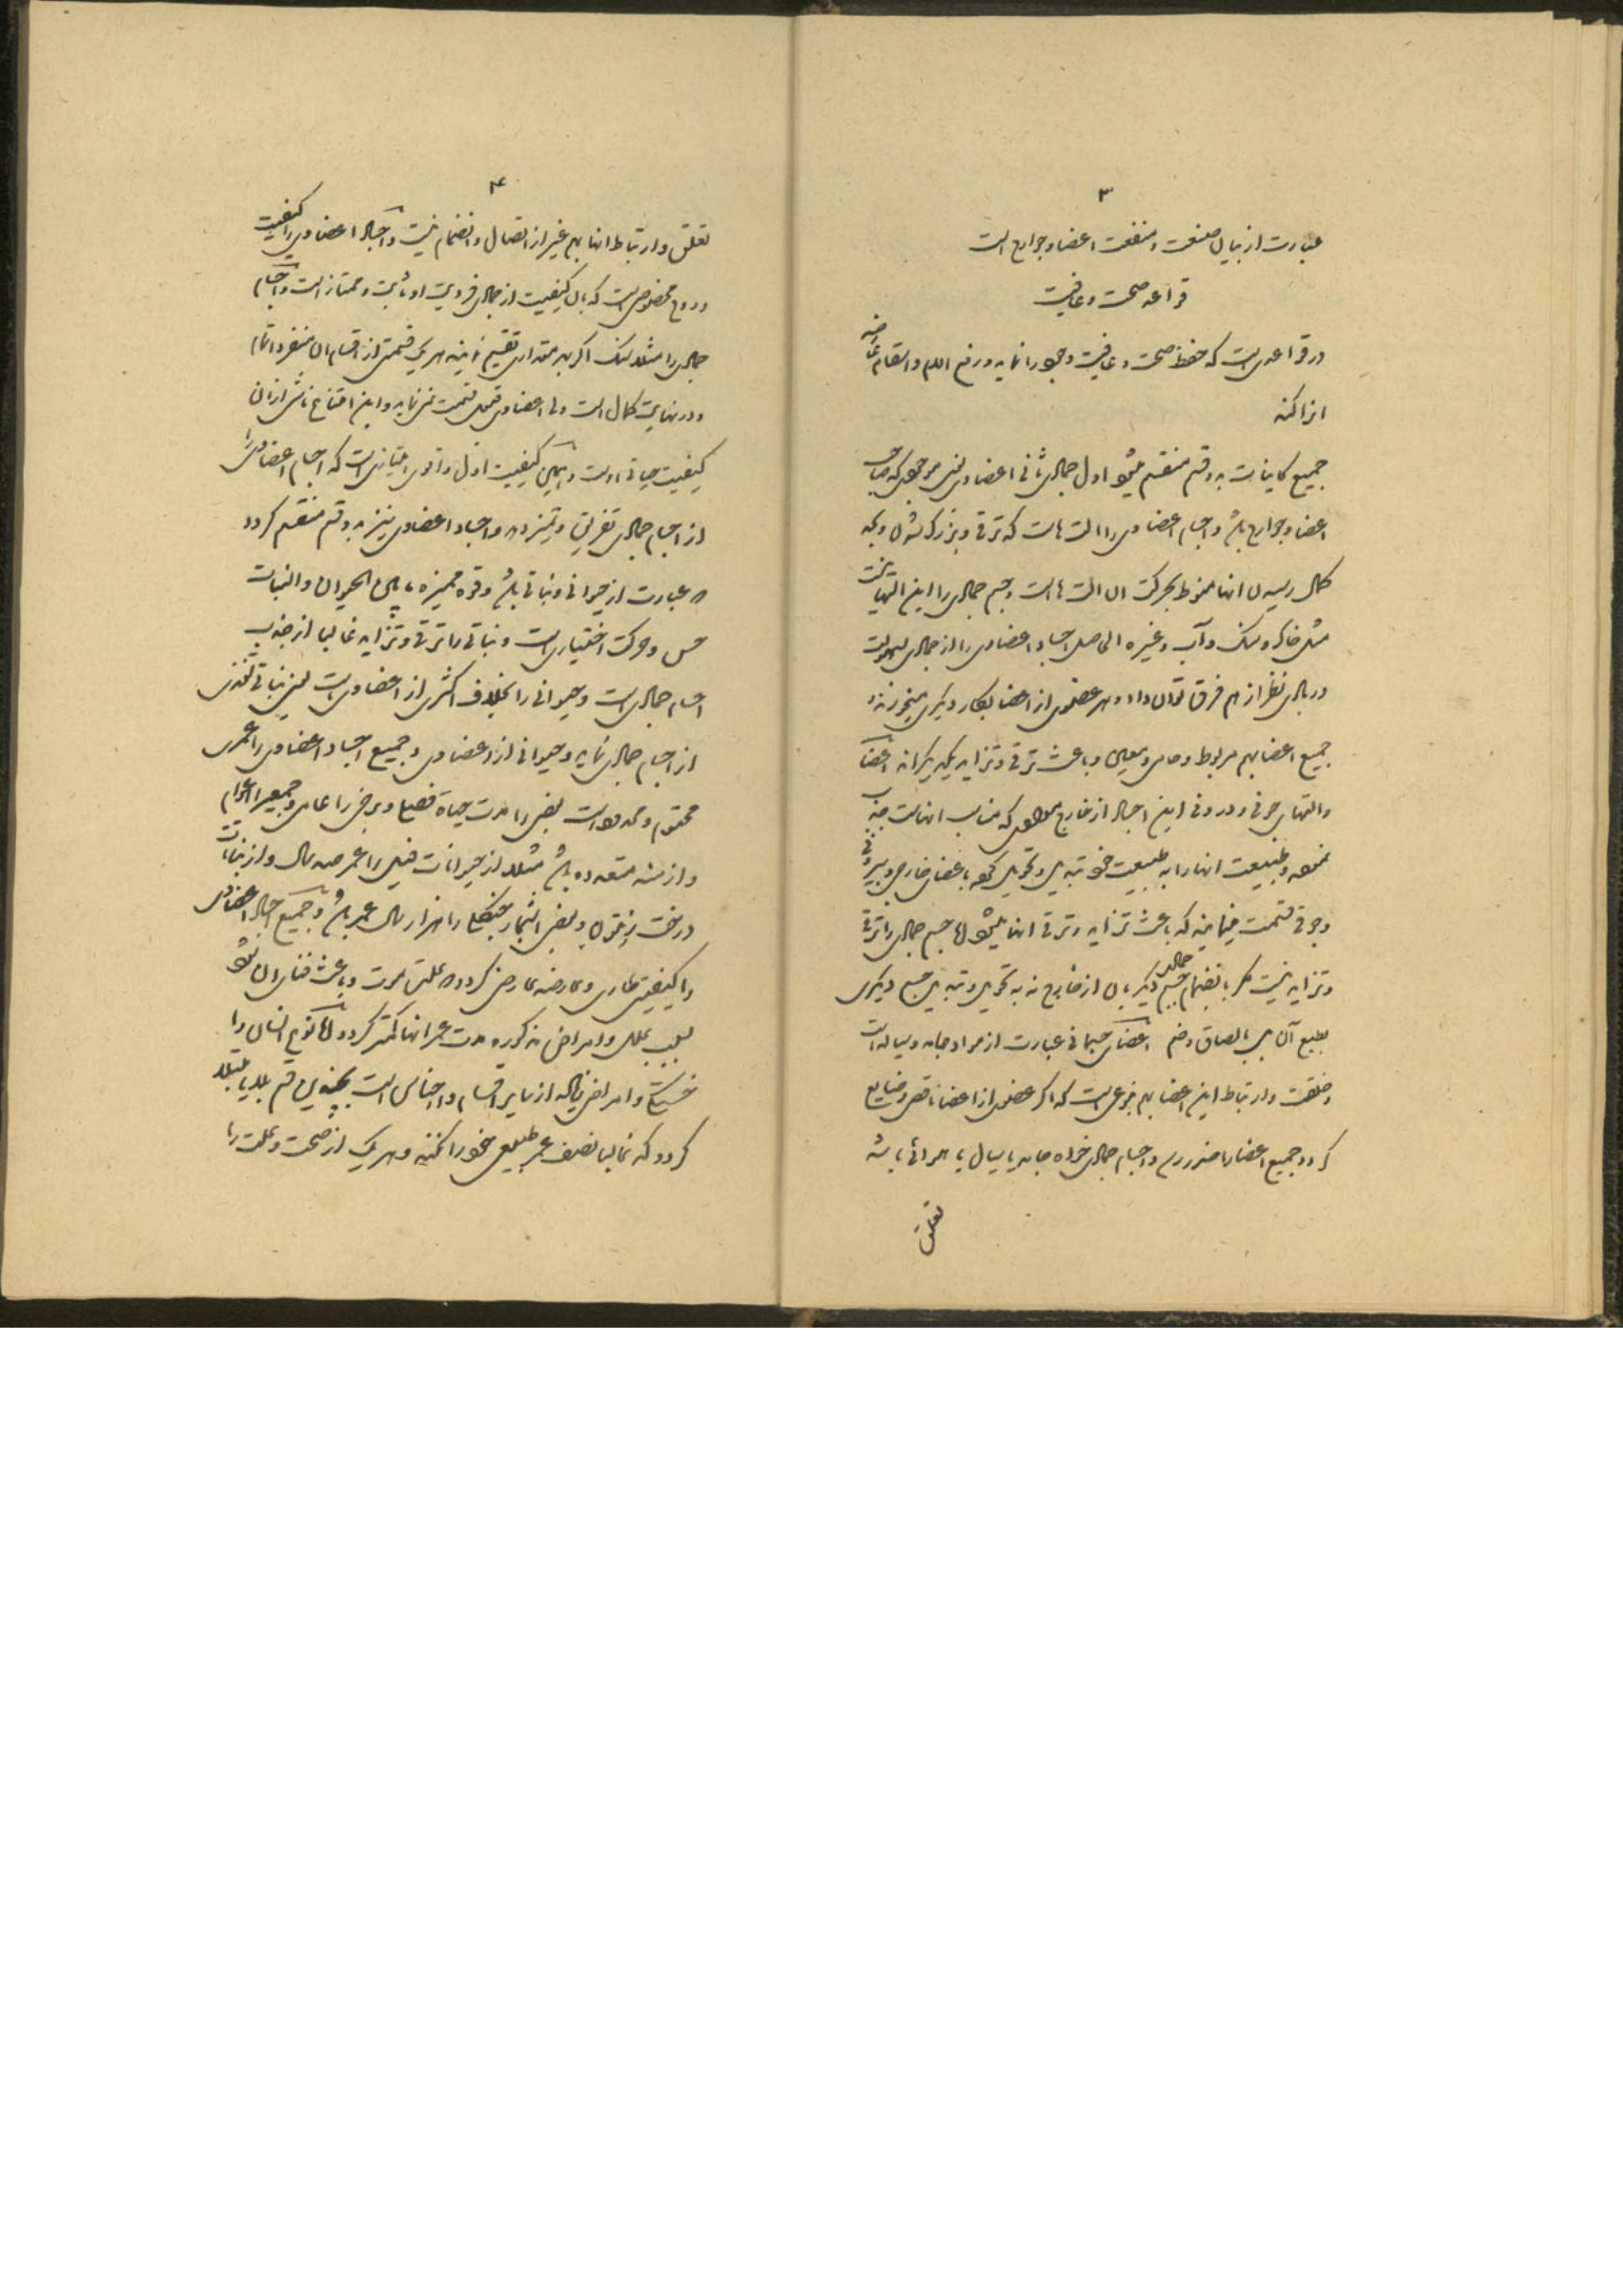 ۳
عبارت از بیان صنعت و منفعت اعضا و جوارح است
قواعد صحت و عافیت
در قواعدی است که حفظ صحت و عافیت وجود را نماید و رفع الام و اسقام عارضه
انرا کند
جمیع کاینات به دو قسم منقسم میشود اول جمادی ثانی اعضاوی یعنی موجودی که صاحب
اعضا و جوارح باشد و اجسام اعضاوی را التهاست که ترقی و بزرگ شدن و بحد
کمال رسیدن انها منوط بحرکت ان التهاست و جسم جمادی را این التها نیست
مثل خاک و سنگ و آب و غیره الحاصل اجساد اعضاوی را از جمادی بسهولت
در بادی نظر از هم فرق توان داد و هر عضوی از اعضا بکار دیگری میخورند
جمیع اعضا بهم مربوط و حامی و معین و باعث ترقی و تزاید یکدیگراند اعضا
والتهای جوفی و درونی این اجساد از خارج موادی که مناسب انهاست جذب
نموده و طبیعت انها را به طبیعت خود تبدیل و تحویل کرده باعضای خارجی و بیرونی
و جوفی قسمت مینمایند که باعث تزاید و ترقی انها میشود اما جسم جمادی را ترقی
و تزاید نیست مگر بانضمام جسم جمادی دیگر بان از خارج نه به تحویل و تبدیل جسم دیگری
بطبع آن بل بالصاق و ضم اعضای جسمانی عبارت از مواد جامد و سیاله است
و خلقت و ارتباط این اعضا بهم بنوعی است که اگر عضوی از اعضا ناقص و ضایع
گردد جمیع اعضا را ضرر رسد و اجسام جمادی خواه جامد یا سیال یا هوائی باشد
تعلق
۴
تعلق و ارتباط انها بهم غیر از اتصال و انضمام نیست و اجساد اعضاوی را کیفیت
و روح مخصوصی است که بان کیفیت از جمادی فرودین او ثابت و ممتاز است و اجسام
جمادی را مثلا سنگ اگر بهر مقداری تقسیم نمایند هر یک قسمتی از اقسام ان منفردا تمام
و در نهایت کمال است ولی اعضاوی قبول قسمت نمینماید و این امتناع ناشی از ان
کیفیت حیاتی اوست و همین کیفیت اول و اقوی امتیازی است که اجسام اعضاوی را
از اجسام جمادی تفریق و تمیز دهد و اجساد اعضاوی نیز به دو قسم منقسم گردد
که عبارت از حیوانی و نباتی باشد و قوه ممیزه ما بین الحیوان و النبات
حس و حرکت اختیاری است و نباتی را ترقی و تزاید غالبا از جذب
اجسام جمادی است و حیوانی را بخلاف اکثری از اعضاوی است یعنی نباتی تغذی
از اجسام جمادی نماید و حیوانی از اعضاوی و جمیع اجساد اعضاوی را عمری
محتوم و محدود است بعضی را مدت حیاة فصیل و برخی را عامی و جمعی را اعوام
و ازمنه متعدده باشد مثلا از حیوانات فیل را عمر صد سال و از نباتات
درخت زیتون و بعضی اشجار جنگل را هزار سال عمر باشد و جمیع اجساد اعضاوی
را کیفیتی طاری و عارضه عارض گردد که علت موت و باعث فنای ان شود
بسبب علل و امراض مذکوره مدت عمر انها کمتر گردد اما نوع انسان را
خستگی و امراض زیاده از سایر اقسام و اجناس است بچندین قسم بلایا مبتلا
گردد که غالبا نصف عمر طبیعی خود را نکنند و هر یک از صحت و علت را